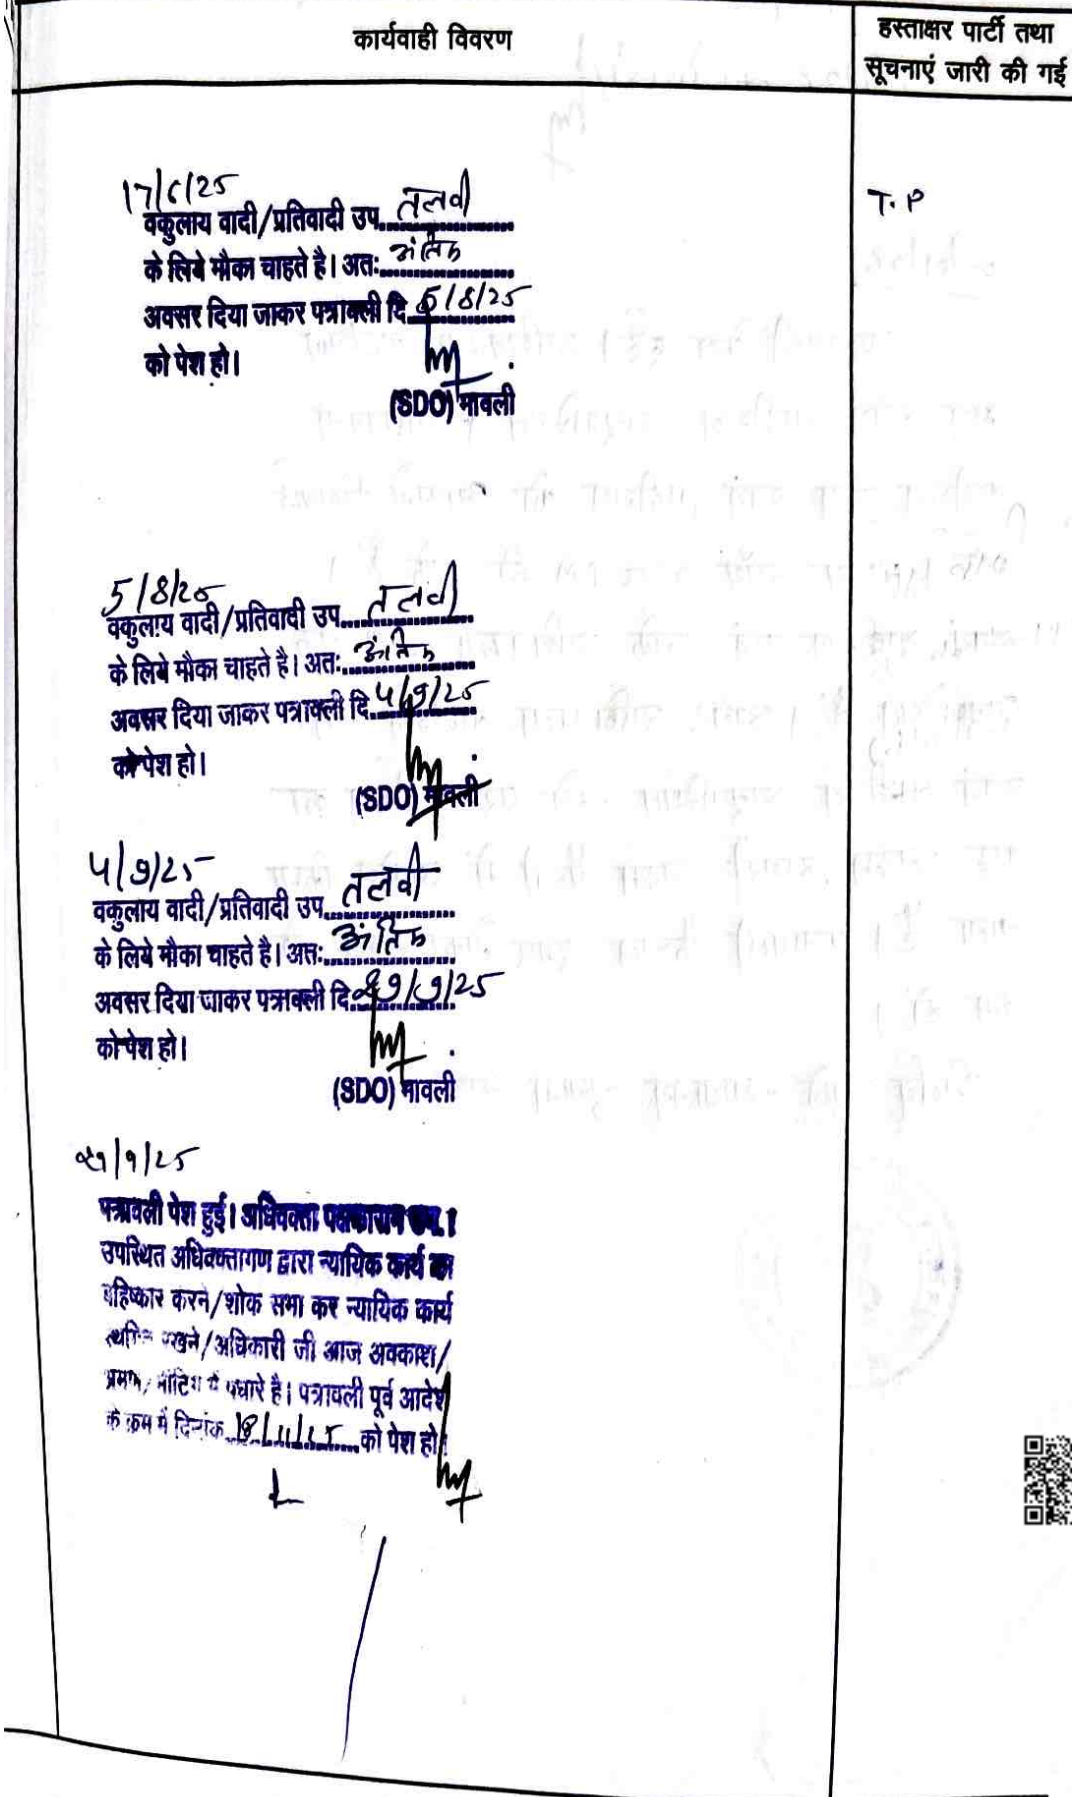 कार्यवाही विवरण
हस्ताक्षर पार्टी तथा
सूचनाएं जारी की गई
17/6/25
T.P
वकुलाय वादी/प्रतिवादी उप. तलवी
के लिये मौका चाहते है। अतः अंतिम
अवसर दिया जाकर पत्रावली दि. 5/8/25
को पेश हो।
(SDO) मावली
5/8/25
वकुलाय वादी/प्रतिवादी उप. तलवी
के लिये मौका चाहते है। अतः अंतिम
अवसर दिया जाकर पत्रावली दि. 4/9/25
को पेश हो।
(SDO) मावली
4/9/25
वकुलाय वादी/प्रतिवादी उप. तलवी
के लिये मौका चाहते है। अतः अंतिम
अवसर दिया जाकर पत्रावली दि. 29/9/25
को पेश हो।
(SDO) मावली
29/9/25
पत्रावली पेश हुई। अधिवक्ता पक्षकारान उप.।
उपस्थित अधिवक्तागण द्वारा न्यायिक कार्य का
बहिष्कार करने/शोक सभा कर न्यायिक कार्य
स्थगित रखने/अधिकारी जी आज अवकाश/
भ्रमण/मीटिंग में पधारे है। पत्रावली पूर्व आदेश
के क्रम में दिनांक 18/11/25 को पेश हो।